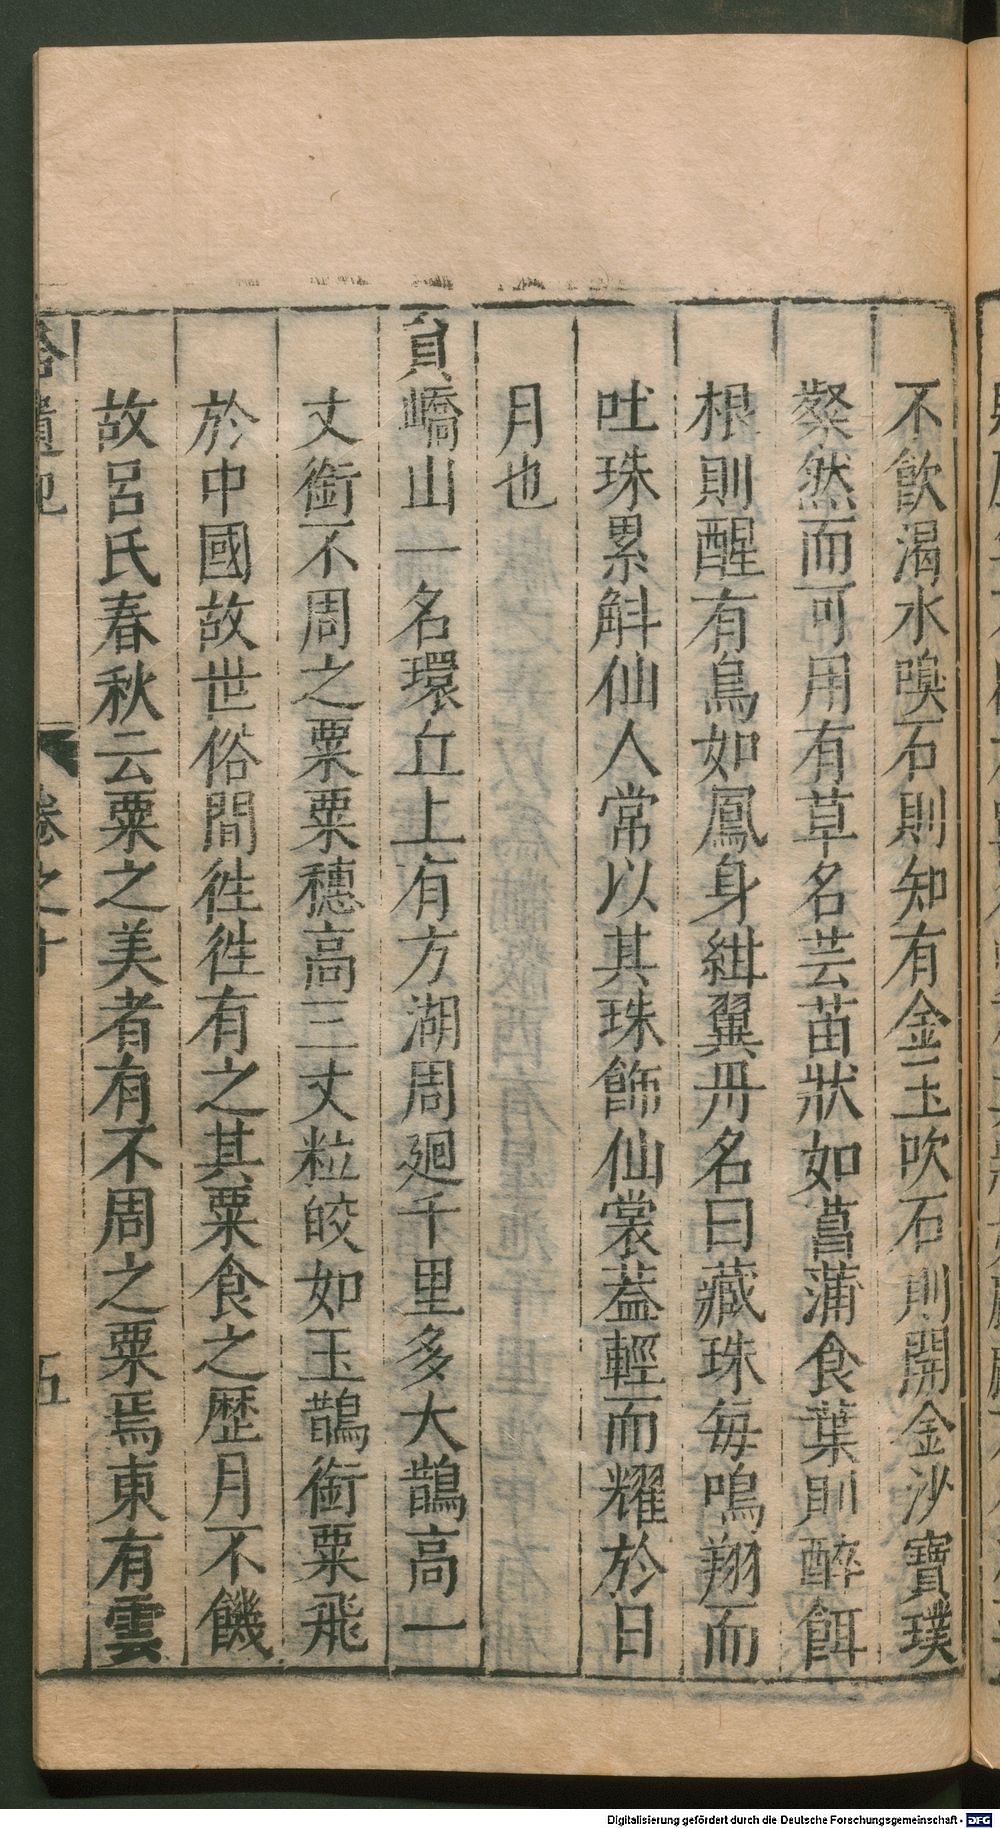 不飲渴水嗅石則知有金玉吹石則開金沙寶璞
粲然而可用有草名芸苗狀如菖蒲食葉則醉餌
根則醒有鳥如鳳身紺翼丹名曰藏珠每鳴翔而
吐珠累斛仙人常以其珠飾仙裳蓋輕而耀於日
月也
員嶠山一名環丘上有方湖周廻千里多大鵲高一
丈銜不周之粟粟穗高三丈粒皎如玉鵲銜粟飛
於中國故世俗間徃徃有之其粟食之歷月不饑
故呂氏春秋云粟之美者有不周之粟焉東有雲
卷之十
五
Digitalisierung gefördert durch die Deutsche Forschungsgemeinschaft - DFG